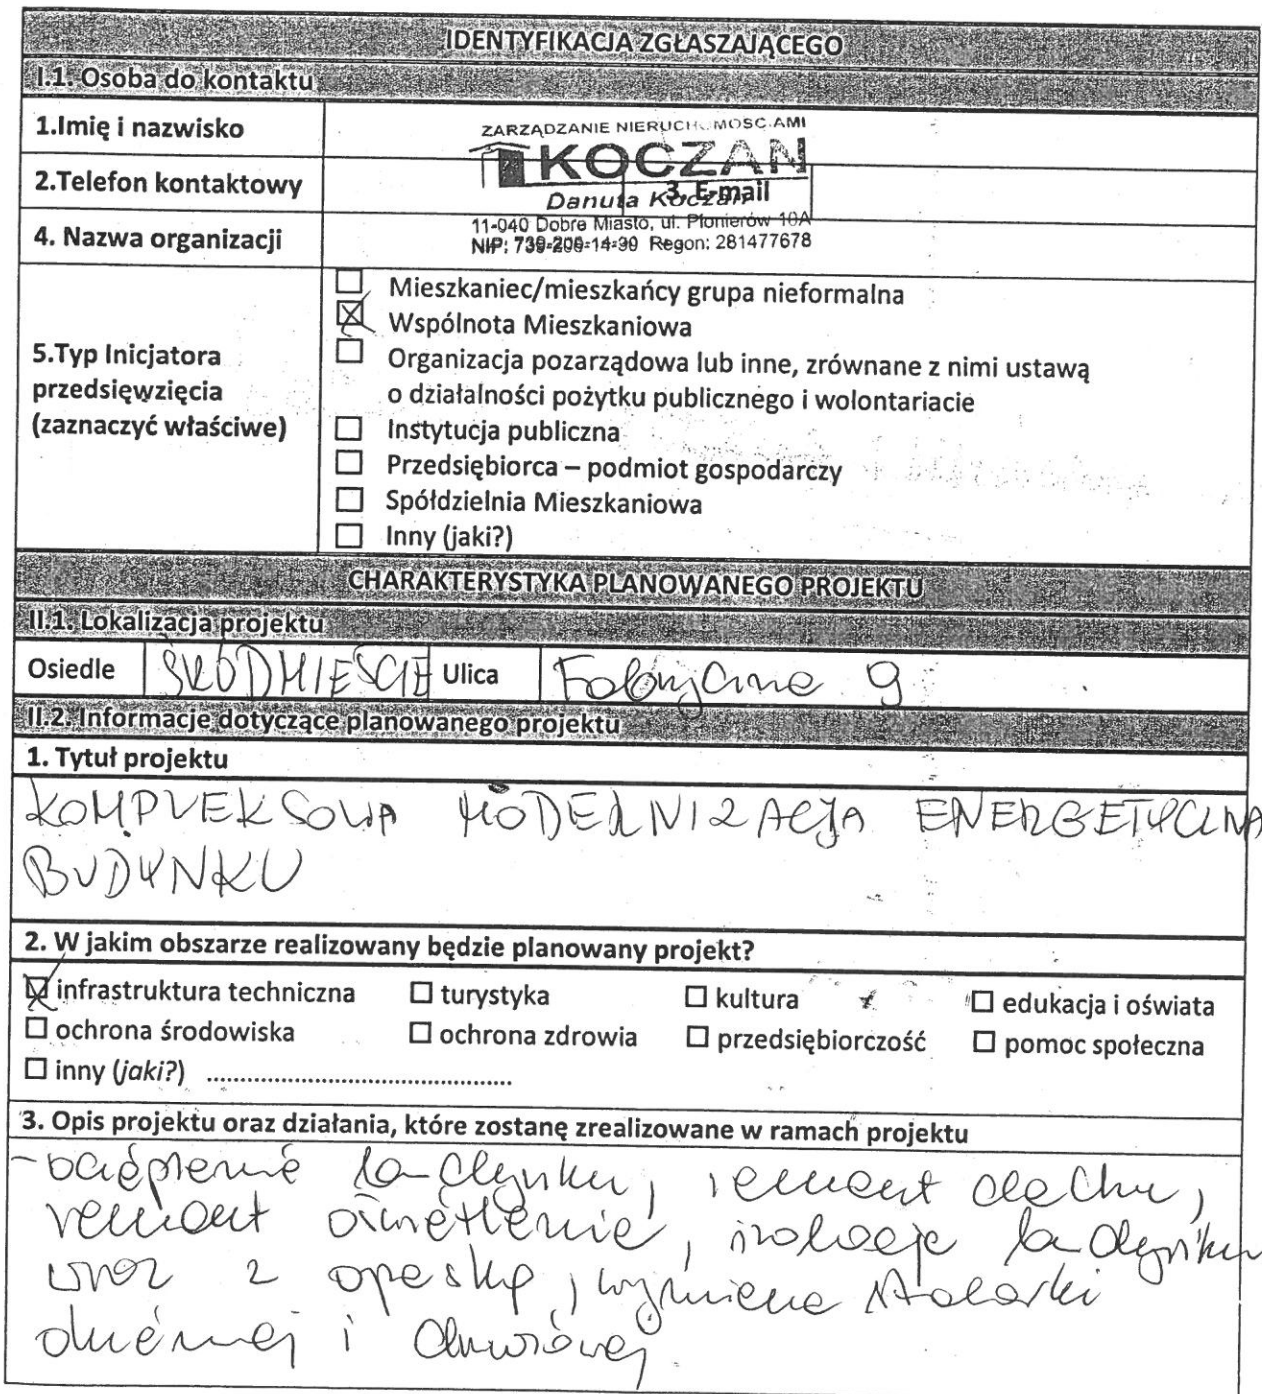 IDENTYFIKACJA ZGŁASZAJĄCEGO
I.1. Osoba do kontaktu
1.Imię i nazwisko
ZARZĄDZANIE NIERUCHOMOŚCIAMI
KOCZAN
2.Telefon kontaktowy
3. E-mail
Danuta Koczan
11-040 Dobre Miasto, ul. Pionierów 10A
4. Nazwa organizacji
NIP: 739-209-14-90 Regon: 281477678
5.Typ Inicjatora
przedsięwzięcia
(zaznaczyć właściwe)
☐ Mieszkaniec/mieszkańcy grupa nieformalna
☒ Wspólnota Mieszkaniowa
☐ Organizacja pozarządowa lub inne, zrównane z nimi ustawą
o działalności pożytku publicznego i wolontariacie
☐ Instytucja publiczna
☐ Przedsiębiorca – podmiot gospodarczy
☐ Spółdzielnia Mieszkaniowa
☐ Inny (jaki?)
CHARAKTERYSTYKA PLANOWANEGO PROJEKTU
II.1. Lokalizacja projektu
Osiedle ŚRÓDMIEŚCIE Ulica Fabryczna 9
II.2. Informacje dotyczące planowanego projektu
1. Tytuł projektu
KOMPLEKSOWA MODERNIZACJA ENERGETYCZNA
BUDYNKU
2. W jakim obszarze realizowany będzie planowany projekt?
☒ infrastruktura techniczna ☐ turystyka ☐ kultura ☐ edukacja i oświata
☐ ochrona środowiska ☐ ochrona zdrowia ☐ przedsiębiorczość ☐ pomoc społeczna
☐ inny (jaki?) ..................................................
3. Opis projektu oraz działania, które zostanę zrealizowane w ramach projektu
- ocieplenie budynku, remont dachu,
remont oświetlenie, izolacje budynku
wraz z opaską, wymiana stolarki
okiennej i drzwiowej